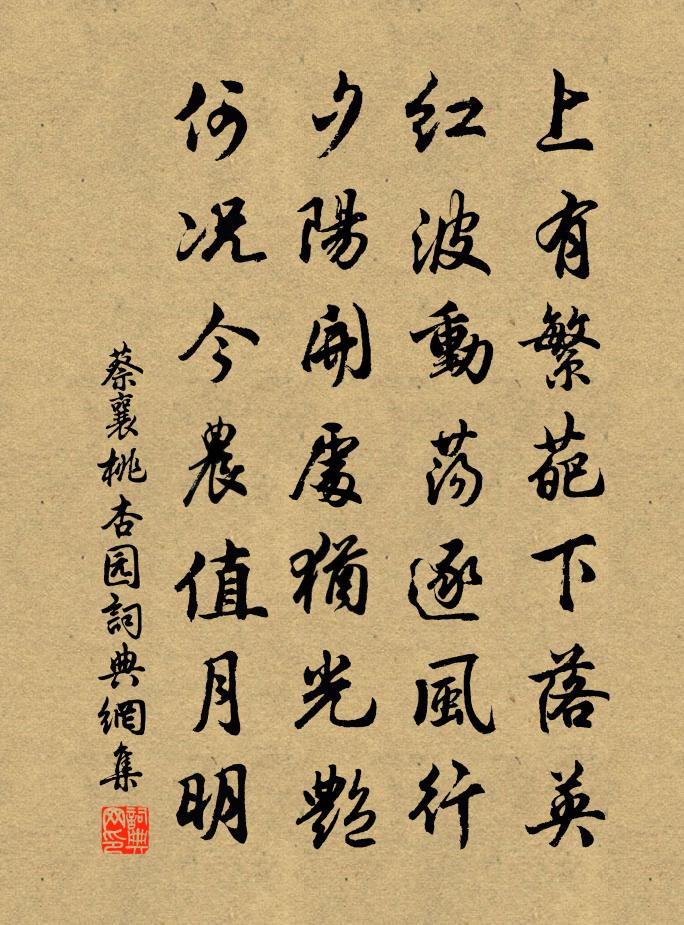 上有繁葩下落英
紅波動荡逐風行
夕陽開處猶光艷
何况今農值月明
蔡襄桃杏园詞典網集
詞典網印